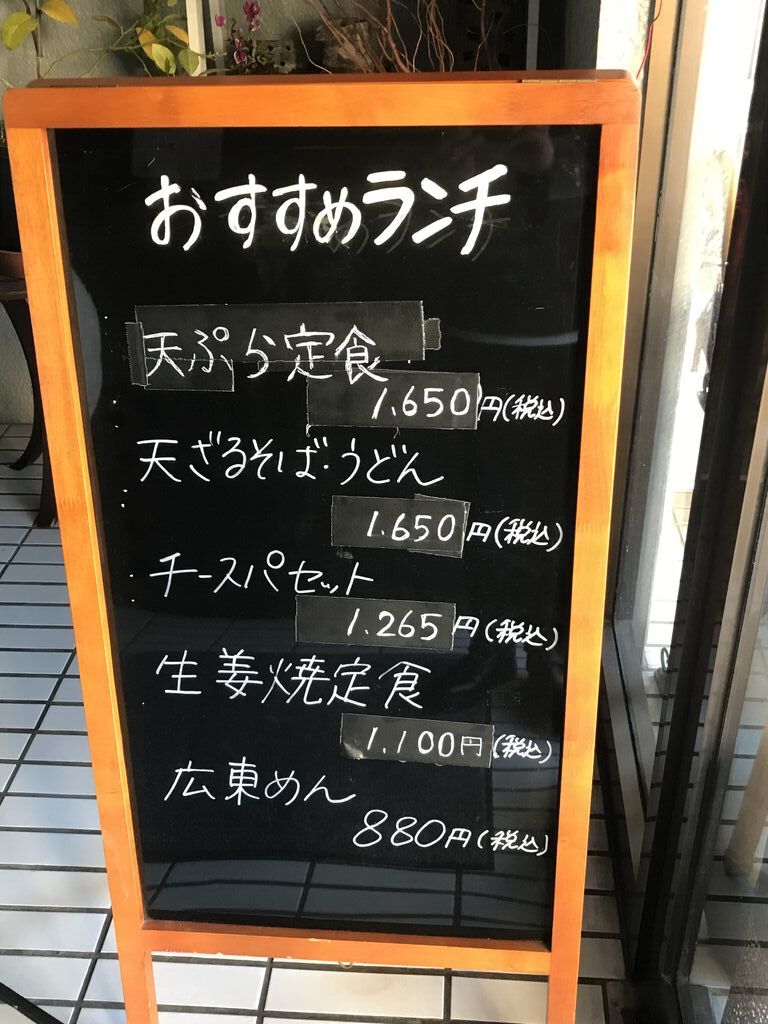 おすすめランチ
天ぷら定食
1.650円(税込)
天ざるそば・うどん
1.650円(税込)
チースパセット
1.265円(税込)
生姜焼定食
1.100円(税込)
広東めん
880円(税込)